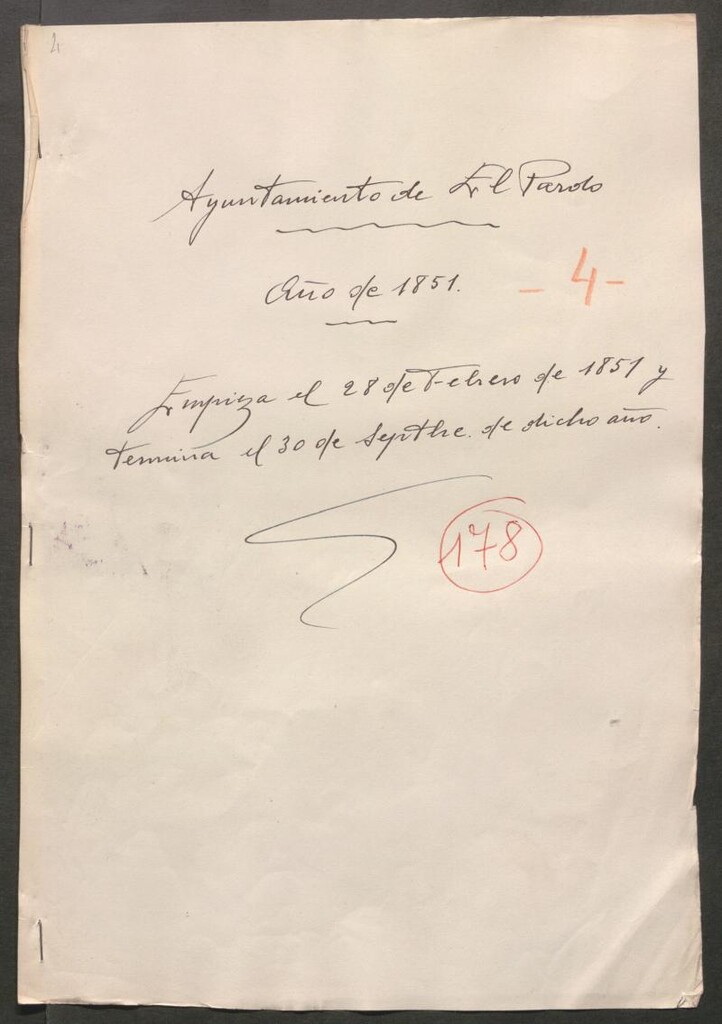 4
Ayuntamiento de El Pardo
Año de 1851.
- 4 -
Empieza el 28 de Febrero de 1851 y
termina el 30 de Septbre. de dicho año.
178